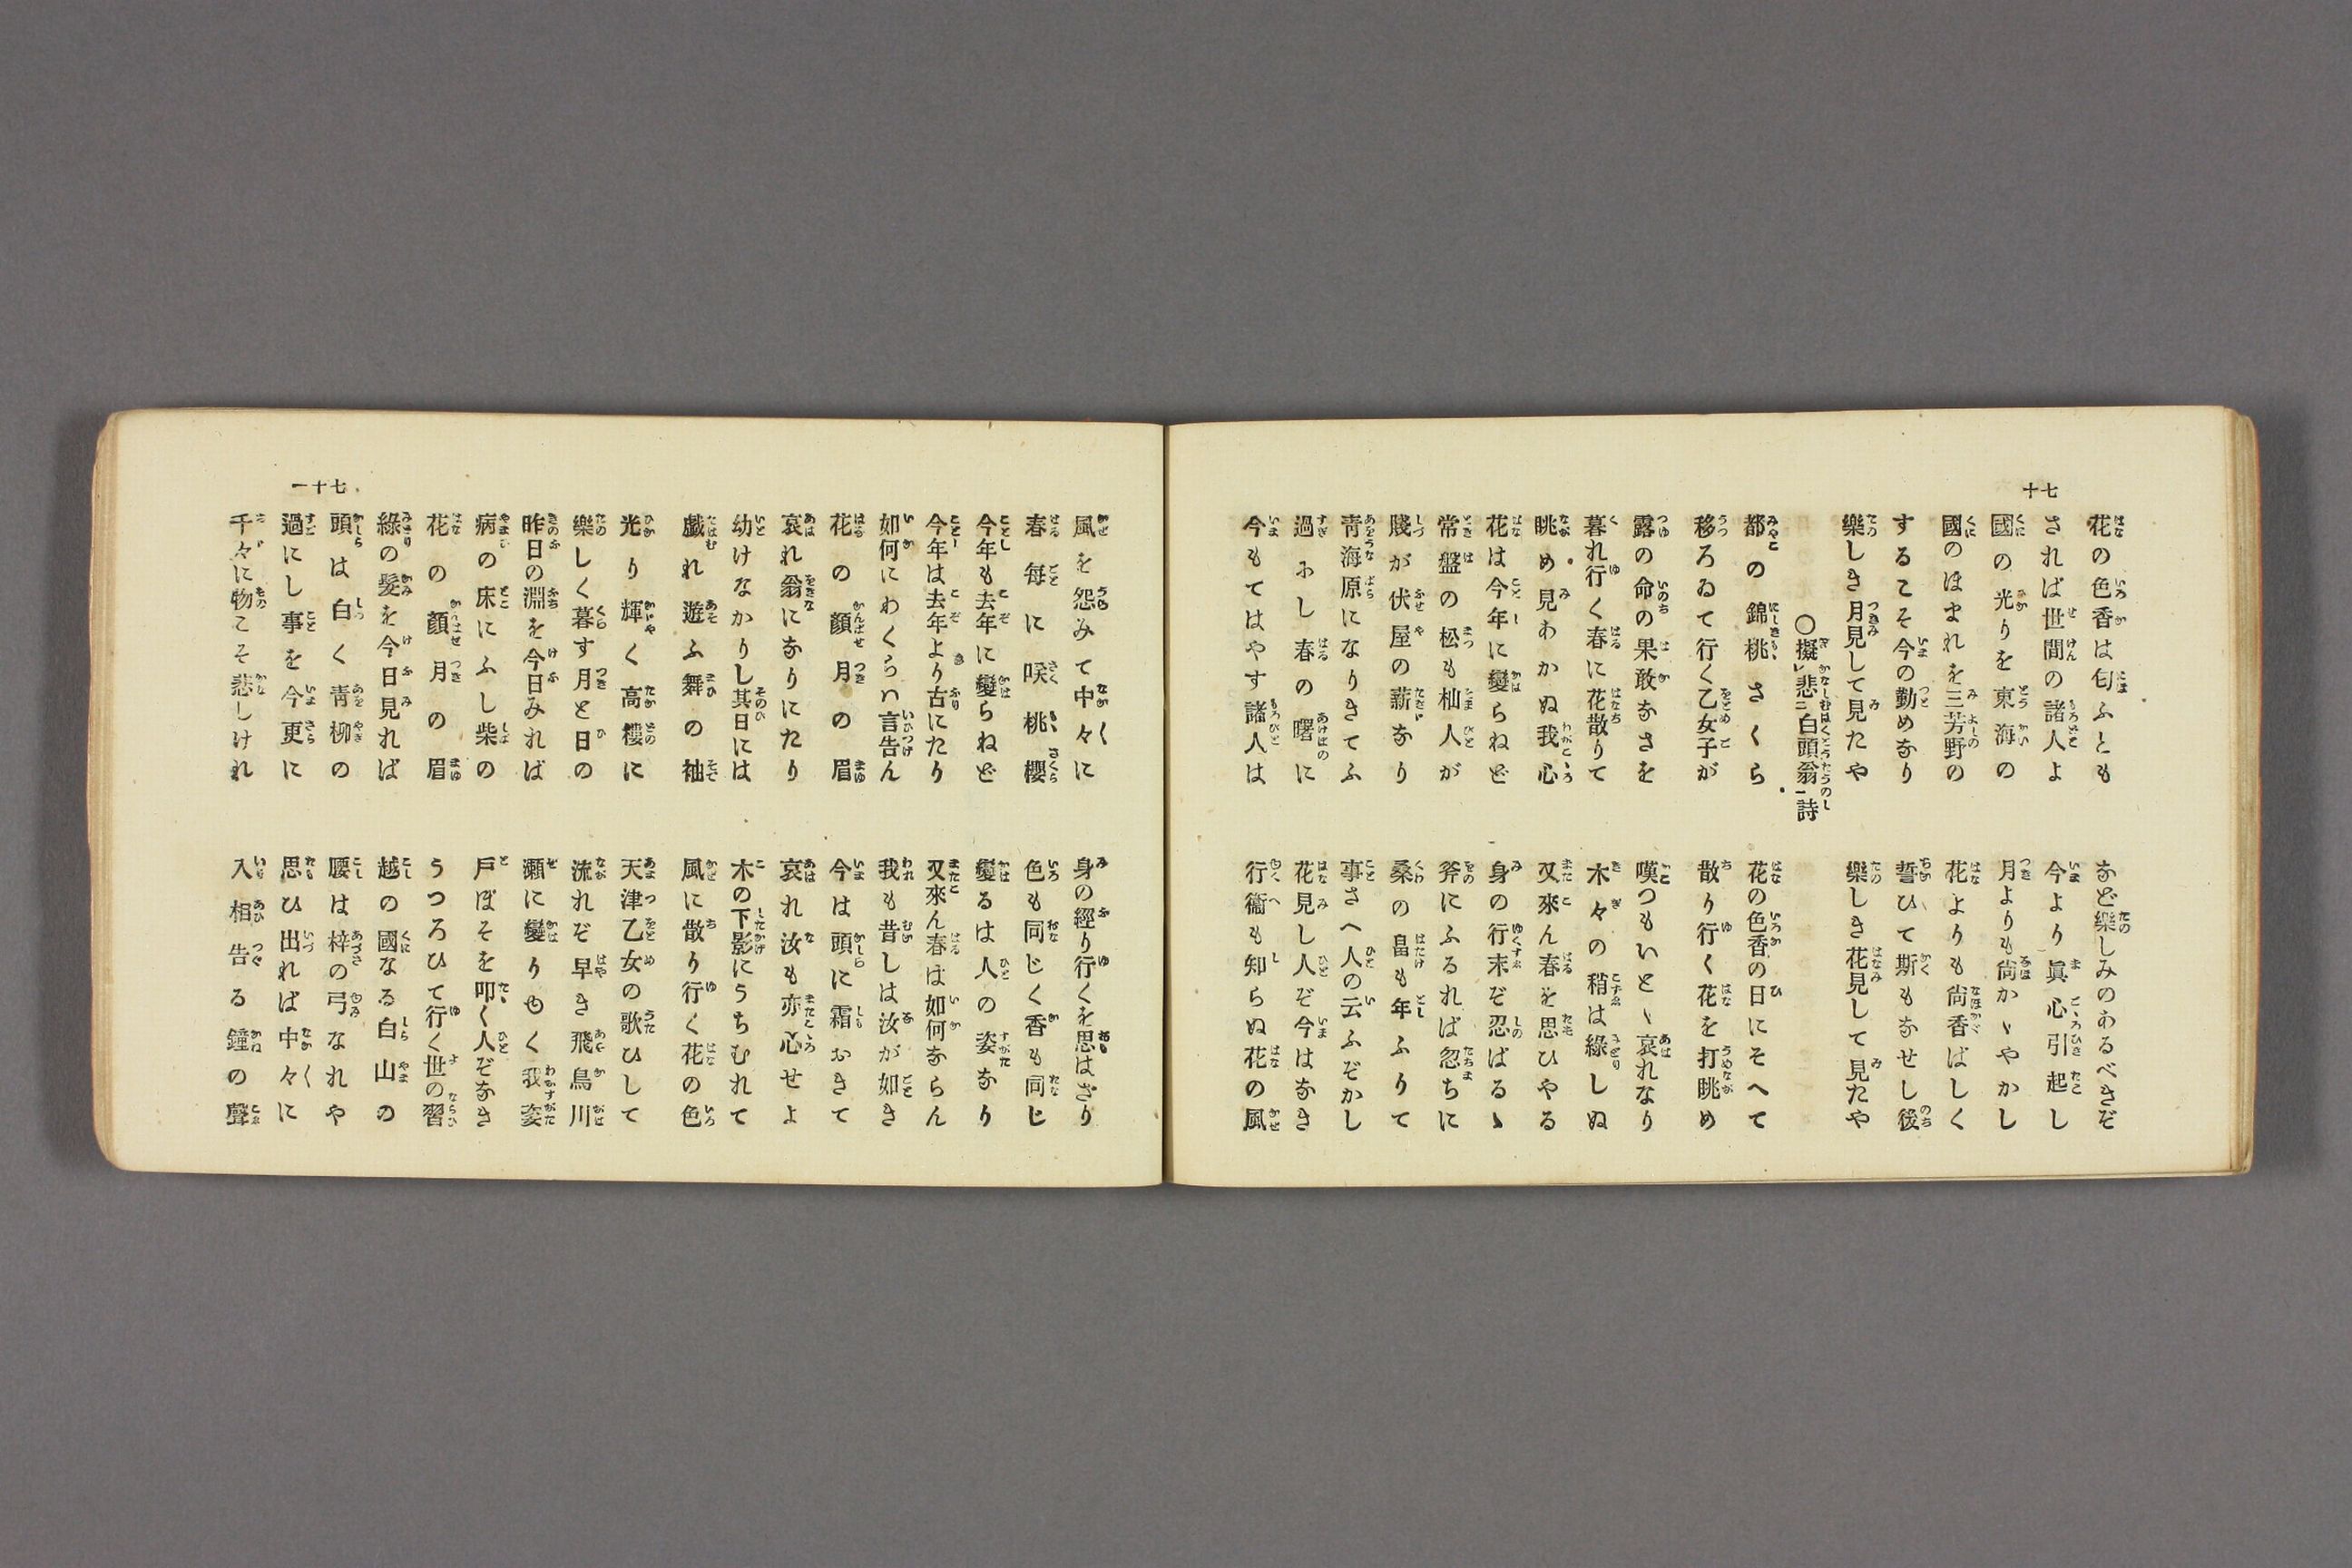 七十
花の色香は匂ふとも　など樂しみのあるべきぞ
されば世間の諸人よ　今より眞心引起し
國の光りを東海の　月よりも尙かゞやかし
國のほまれを三芳野の　花よりも尙香ばしく
するこそ今の勤めなり　誓ひて斯もなせし後
樂しき月見して見たや　樂しき花見して見たや
〇擬レ悲二白頭翁一詩
都の錦桃さくら　花の色香の日にそへて
移ろゐて行く乙女子が　散り行く花を打眺め
露の命の果敢なさを　嘆つもいとゞ哀れなり
暮れ行く春に花散りて　木々の稍は綠しぬ
眺め見あかぬ我心　又來ん春を思ひやる
花は今年に變らねど　身の行末ぞ忍ばるゝ
常盤の松も杣人が　斧にふるれば忽ちに
賤が伏屋の薪なり　桑の畠も年ふりて
靑海原になりきてふ　事さへ人の云ふぞかし
過ふし春の曙に　花見し人ぞ今はなき
今もてはやす諸人は　行衞も知らぬ花の風
七十一
風を怨みて中々に　身の經り行くを思はざり
春每に咲桃櫻　色も同じく香も同じ
今年も去年に變らねど　變るは人の姿なり
今年は去年より古にたり　又來ん春は如何ならん
如何にわくらハ言告ん　我も昔しは汝が如き
花の顏月の眉　今は頭に霜おきて
哀れ翁になりにたり　哀れ汝も亦心せよ
幼けなかりし其日には　木の下影にうちむれて
戯れ遊ふ舞の袖　風に散り行く花の色
光り輝く高樓に　天津乙女の歌ひして
樂しく暮す月と日の　流れぞ早き飛鳥川
昨日の淵を今日みれば　瀨に變りゆく我姿
病の床にふし柴の　戶ぼそを叩く人ぞなき
花の顏月の眉　うつろひて行く世の習
綠の髮を今日見れば　越の國なる白山の
頭は白く靑柳の　腰は梓の弓なれや
過にし事を今更に　思ひ出れば中々に
千々に物こそ悲しけれ　入相告る鐘の聲